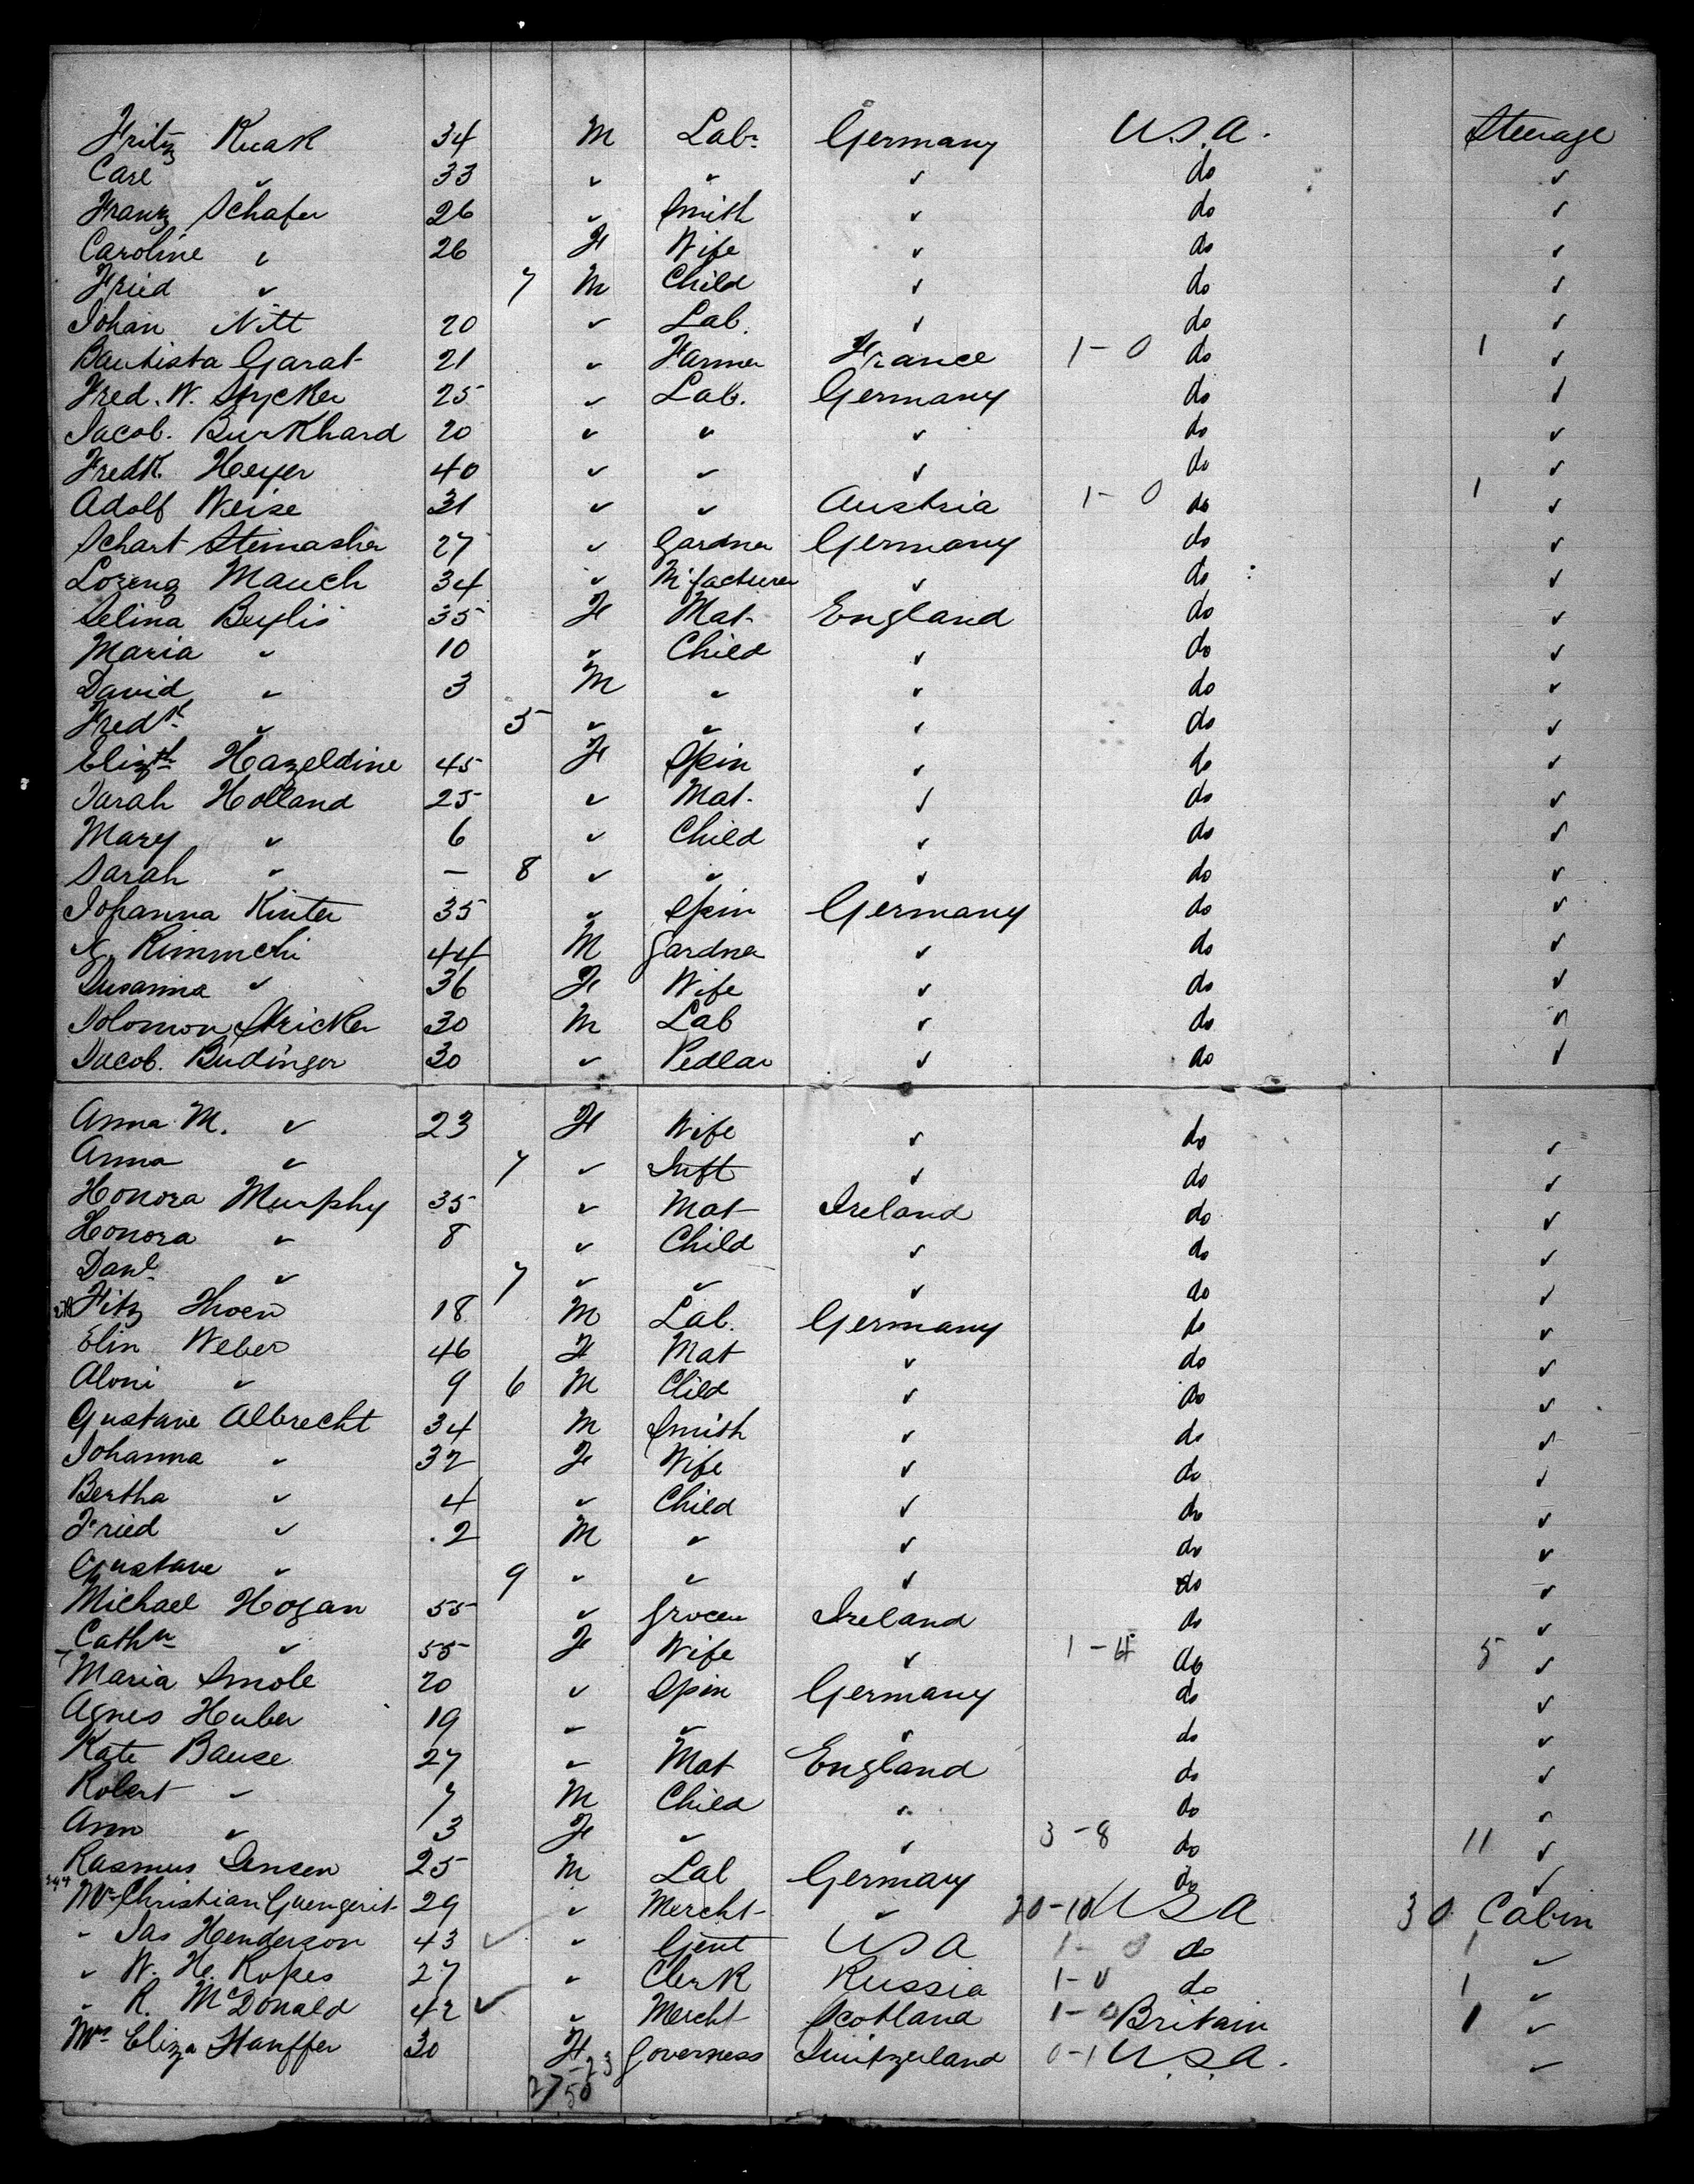 Fritz Kuak 34 M Labr Germany U.S.A. Steerage
Carl ✓ 33 ✓ ✓ ✓ do ✓
Franz Schafer 26 ✓ Smith ✓ do ✓
Caroline ✓ 26 F Wife ✓ do ✓
Fried ✓ 7 M Child ✓ do ✓
Johan Nitt 20 ✓ Lab. ✓ do ✓
Bautista Garat 21 ✓ Farmer France 1-0 do 1 ✓
Fred. W. Stycker 25 ✓ Lab. Germany do ✓
Jacob. Burkhard 20 ✓ ✓ ✓ do ✓
Fredk. Heyer 40 ✓ ✓ ✓ do ✓
Adolf Weise 31 ✓ ✓ Austria 1-0 do 1 ✓
Schart Steinasher 27 ✓ Gardner Germany do ✓
Lorenz Mauch 34 ✓ M'facturer ✓ do ✓
Selina Beylis 35 F Mat. England do ✓
Maria ✓ 10 ✓ Child ✓ do ✓
David ✓ 3 M ✓ ✓ do ✓
Fredk ✓ 5 ✓ ✓ ✓ do ✓
Elizth Hazeldine 45 F Spin ✓ do ✓
Sarah Holland 25 ✓ Mat. ✓ do ✓
Mary ✓ 6 ✓ Child ✓ do ✓
Sarah ✓ — 8 ✓ ✓ ✓ do ✓
Johanna Kinter 35 ✓ Spin Germany do ✓
Rimmchi 44 M Gardner ✓ do ✓
Susanna ✓ 36 F Wife ✓ do ✓
Solomon Stricker 30 M Lab ✓ do ✓
Jacob. Budinger 30 ✓ Pedlar ✓ do ✓
Anna M. ✓ 23 F Wife ✓ do ✓
Anna ✓ 7 ✓ Inft ✓ do ✓
Honora Murphy 35 ✓ Mat Ireland do ✓
Honora ✓ 8 ✓ Child ✓ do ✓
Danl ✓ 7 ✓ ✓ ✓ do ✓
Fitz Thoen 18 M Lab. Germany do ✓
Elin Weber 46 F Mat ✓ do ✓
Aloni ✓ 9 6 M Child ✓ do ✓
Gustave Albrecht 34 M Smith ✓ do ✓
Johanna ✓ 32 F Wife ✓ do ✓
Bertha ✓ 4 ✓ Child ✓ do ✓
Fried ✓ 2 M ✓ ✓ do ✓
Gustave ✓ 9 ✓ ✓ ✓ do ✓
Michael Hogan 55 ✓ Grocer Ireland do ✓
Cathn ✓ 55 F Wife ✓ 1-4 do 5 ✓
Maria Smole 20 ✓ Spin Germany do ✓
Agnes Huber 19 ✓ ✓ ✓ do ✓
Kate Bause 27 ✓ Mat England do ✓
Robert ✓ 7 M Child ✓ do ✓
Ann ✓ 3 F ✓ ✓ 3-8 do 11 ✓
Rasmus Jensen 25 M Lab Germany do ✓
Mr Christian Guengerit 29 ✓ Mercht ✓ 20-10 USA 30 Cabin
✓ Jas Henderson 43 ✓ ✓ Gent USA 1-0 do 1 ✓
✓ W. H. Ropes 27 ✓ Clerk Russia 1-0 do 1 ✓
✓ R. McDonald 42 ✓ ✓ Mercht Scotland 1-0 Britain 1 ✓
Mrs Eliza Stauffer 30 F Governess Switzerland 0-1 U.S.A. ✓
27 23
50